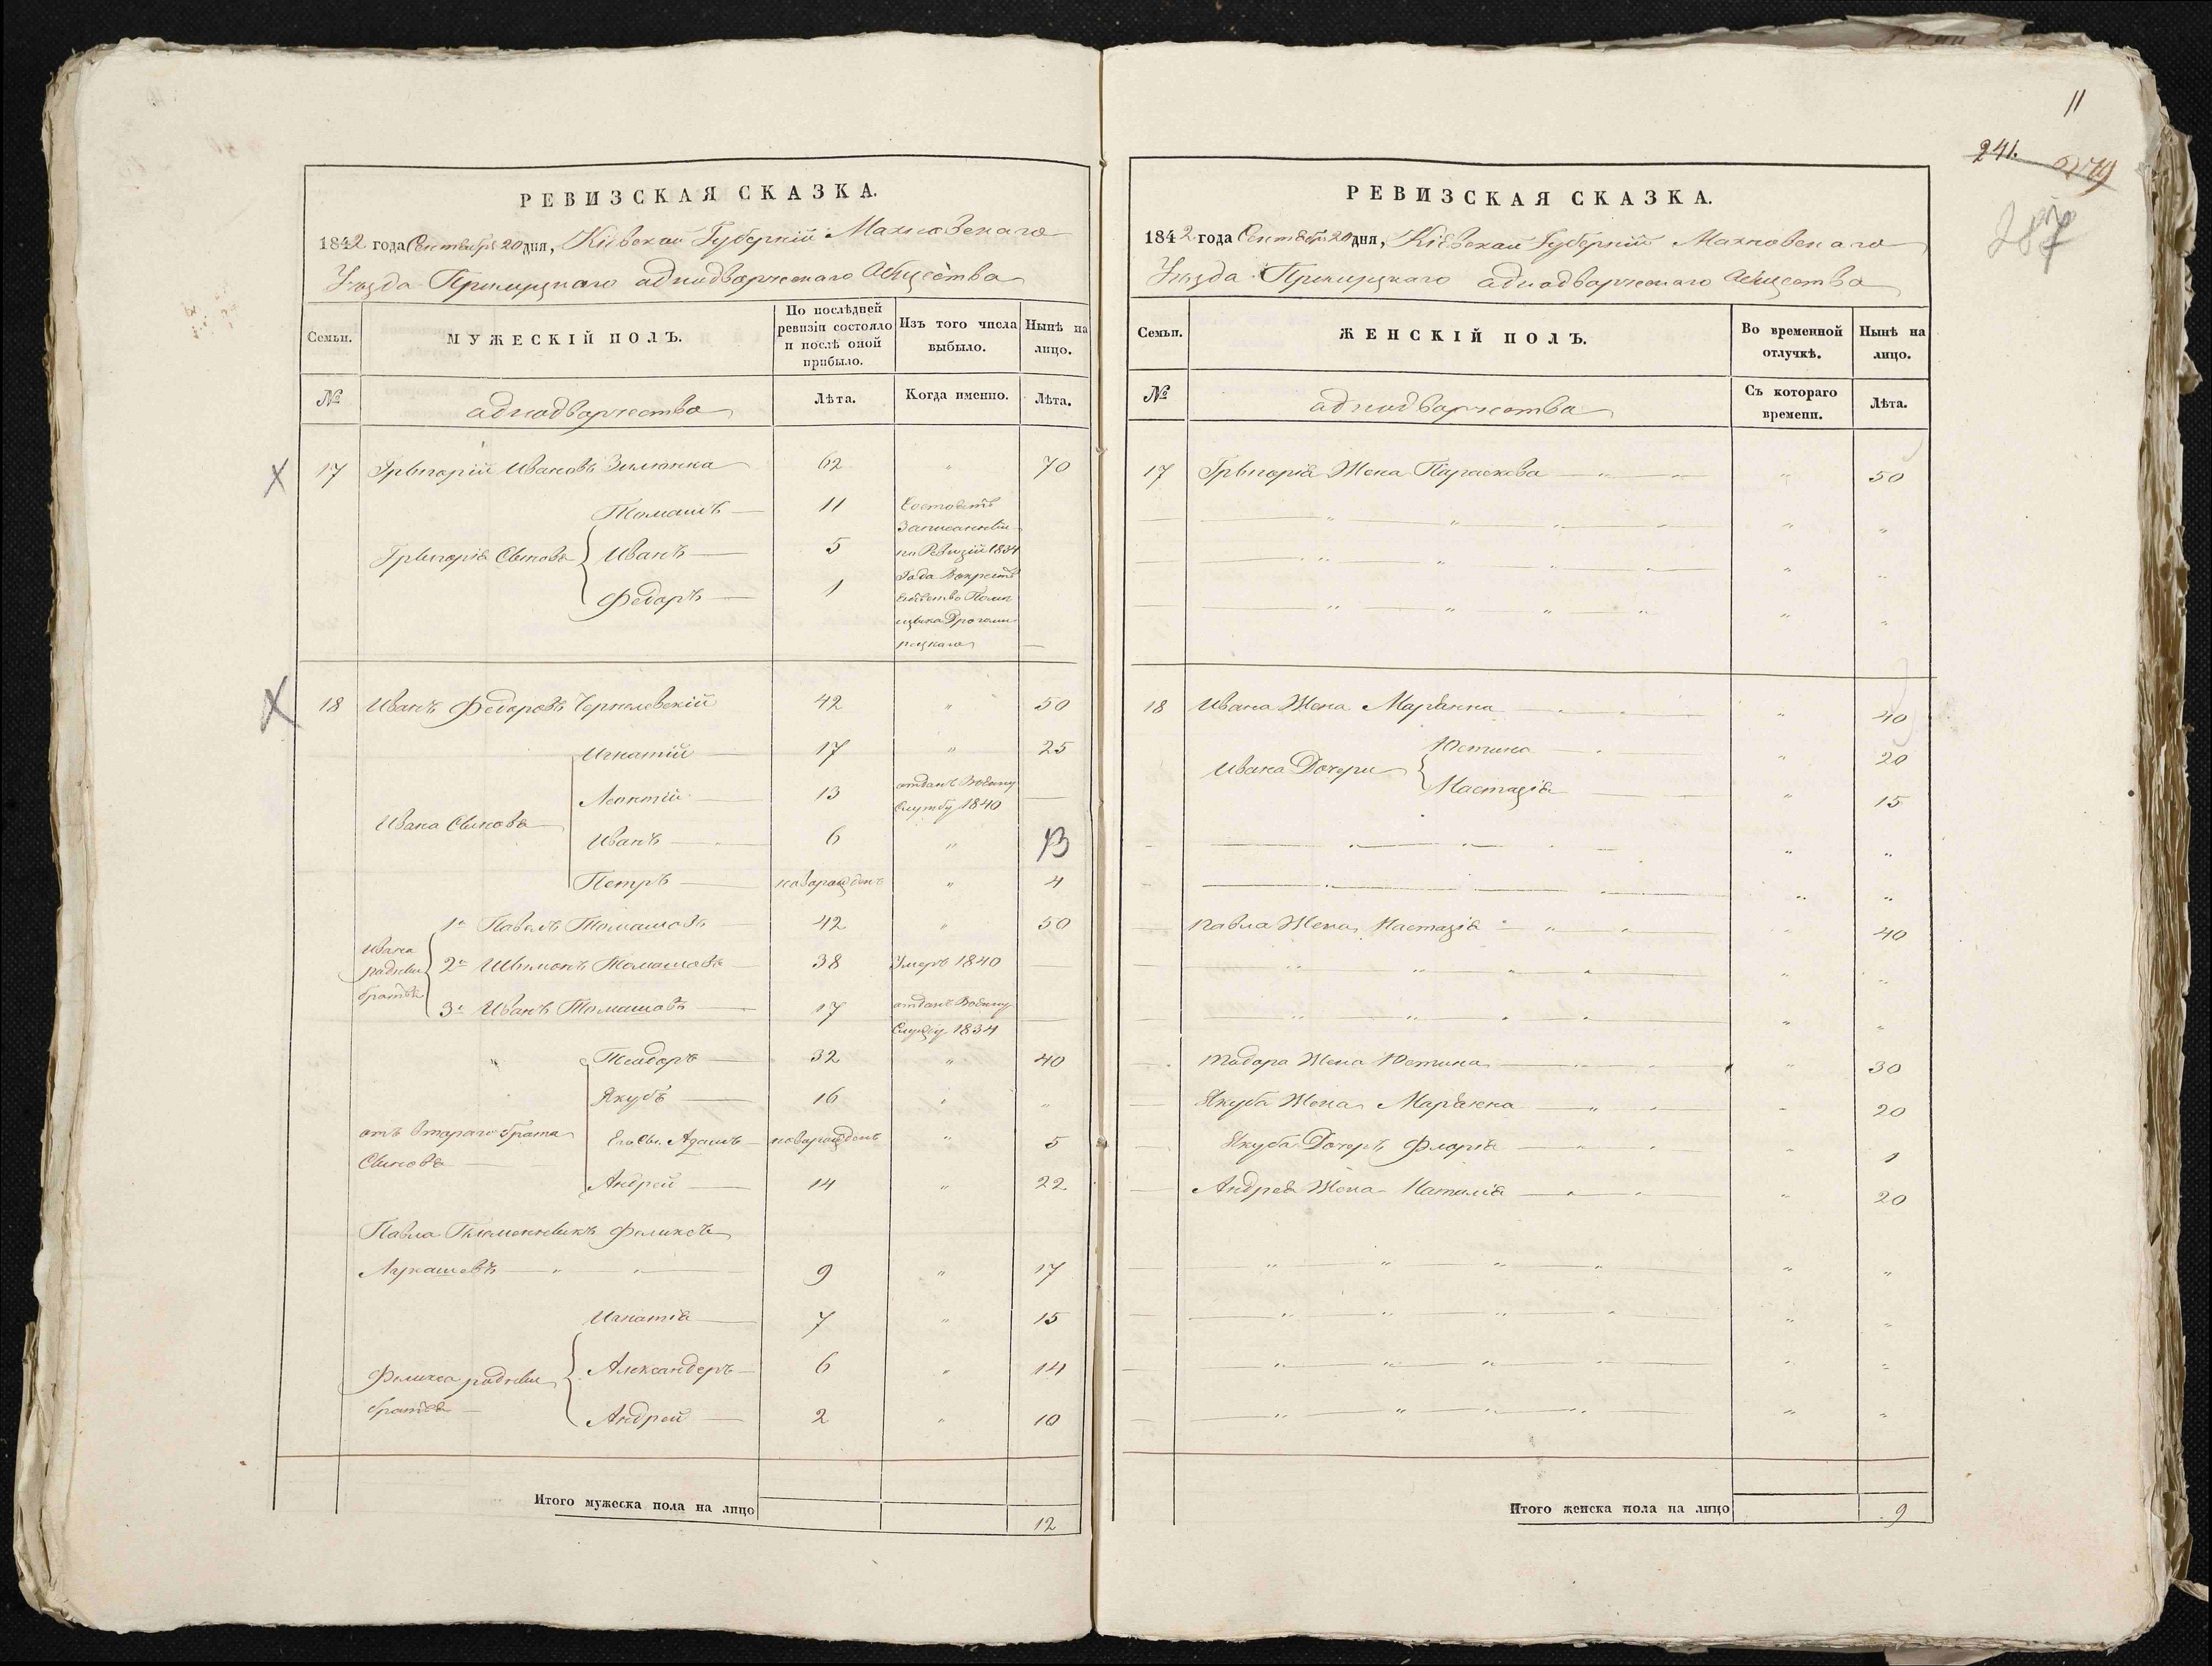 РЕВИЗСКАЯ СКАЗКА.
1842 года Сентября 20 дня, Кіевской Губерніи Махновскаго
Уезда Прилуцкаго аднодворческаго Общества
Семьи.
МУЖЕСКІЙ ПОЛЪ.
По послѣдней ревизіи состояло и послѣ оной прибыло.
Изъ того числа выбыло.
Нынѣ на лицо.
№
аднодворчества
Лѣта.
Когда именно.
Лѣта.
17 Григорій Ивановъ 62 " 70
Томашъ 11
Григорія Сынова Иванъ 5
Федоръ 1
Состоятъ
Записанный
по Ревизіи 1834
Года
18 Иванъ Федоровъ 42 " 50
Игнатій 17 " 25
Леонтій 13 отданъ Воѣнну
Службу 1840
Ивана Сынова
Иванъ 6 " 13
Петръ новорожденъ " 4
1й Павелъ Томашовъ 42 " 50
Ивана родныи братья
2й Шимонъ Томашовъ 38 Умеръ 1840
3й Иванъ Томашовъ 17 отданъ Воѣнну
Службу 1834
Теодоръ 32 " 40
Якубъ 16 " "
отъ втораго брата Его Сы. Адамъ новорожденъ " 5
Сынова
Андрей 14 " 22
Павла Племенникъ Феликсъ
Лукашевъ 9 " 17
Игнатія 7 " 15
Феликса родныи Александеръ 6 " 14
братья
Андрей 2 " 10
Итого мужеска пола на лицо 12
11
241.
279
287
РЕВИЗСКАЯ СКАЗКА.
1842 года Сентября 20 дня, Кіевской Губерніи Махновскаго
Уезда Прилуцкаго аднодворческаго Общества
Семьи.
ЖЕНСКІЙ ПОЛЪ.
Во временной отлучкѣ.
Нынѣ на лицо.
№
аднодворчества
Съ котораго времени.
Лѣта.
17 Григорія Жена Параскева " 50
18 Ивана Жена Маріанна " 40
Юстина " 20
Ивана Дочери
Настазія " 15
Павла Жена Настазія " 40
Тодора Жена Юстина " 30
Якуба Жена Маріанна 20
Якуба Дочеръ Флорія 1
Андрея Жена Наталія " 20
Итого женска пола на лицо 9